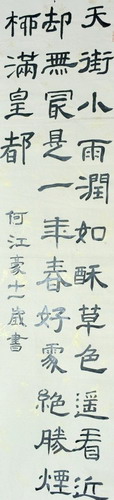 天街小雨潤如酥草色遥看近
却無㝡是一年春好處絶勝煙
柳滿皇都
何江豪十一歲書